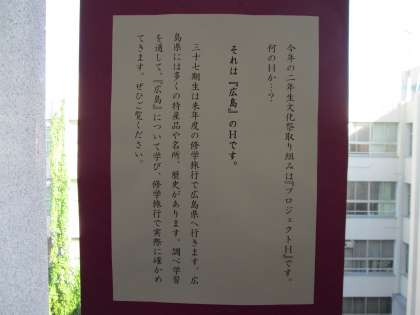 今年の二年生文化祭取り組みは『プロジェクトH』です。
何のHか…?
それは『広島』のHです。
三十七期生は来年度の修学旅行で広島県へ行きます。広
島県には多くの特産品や名所、歴史があります。調べ学習
を通して、『広島』について学び、修学旅行で実際に確かめ
てきます。ぜひご覧ください。